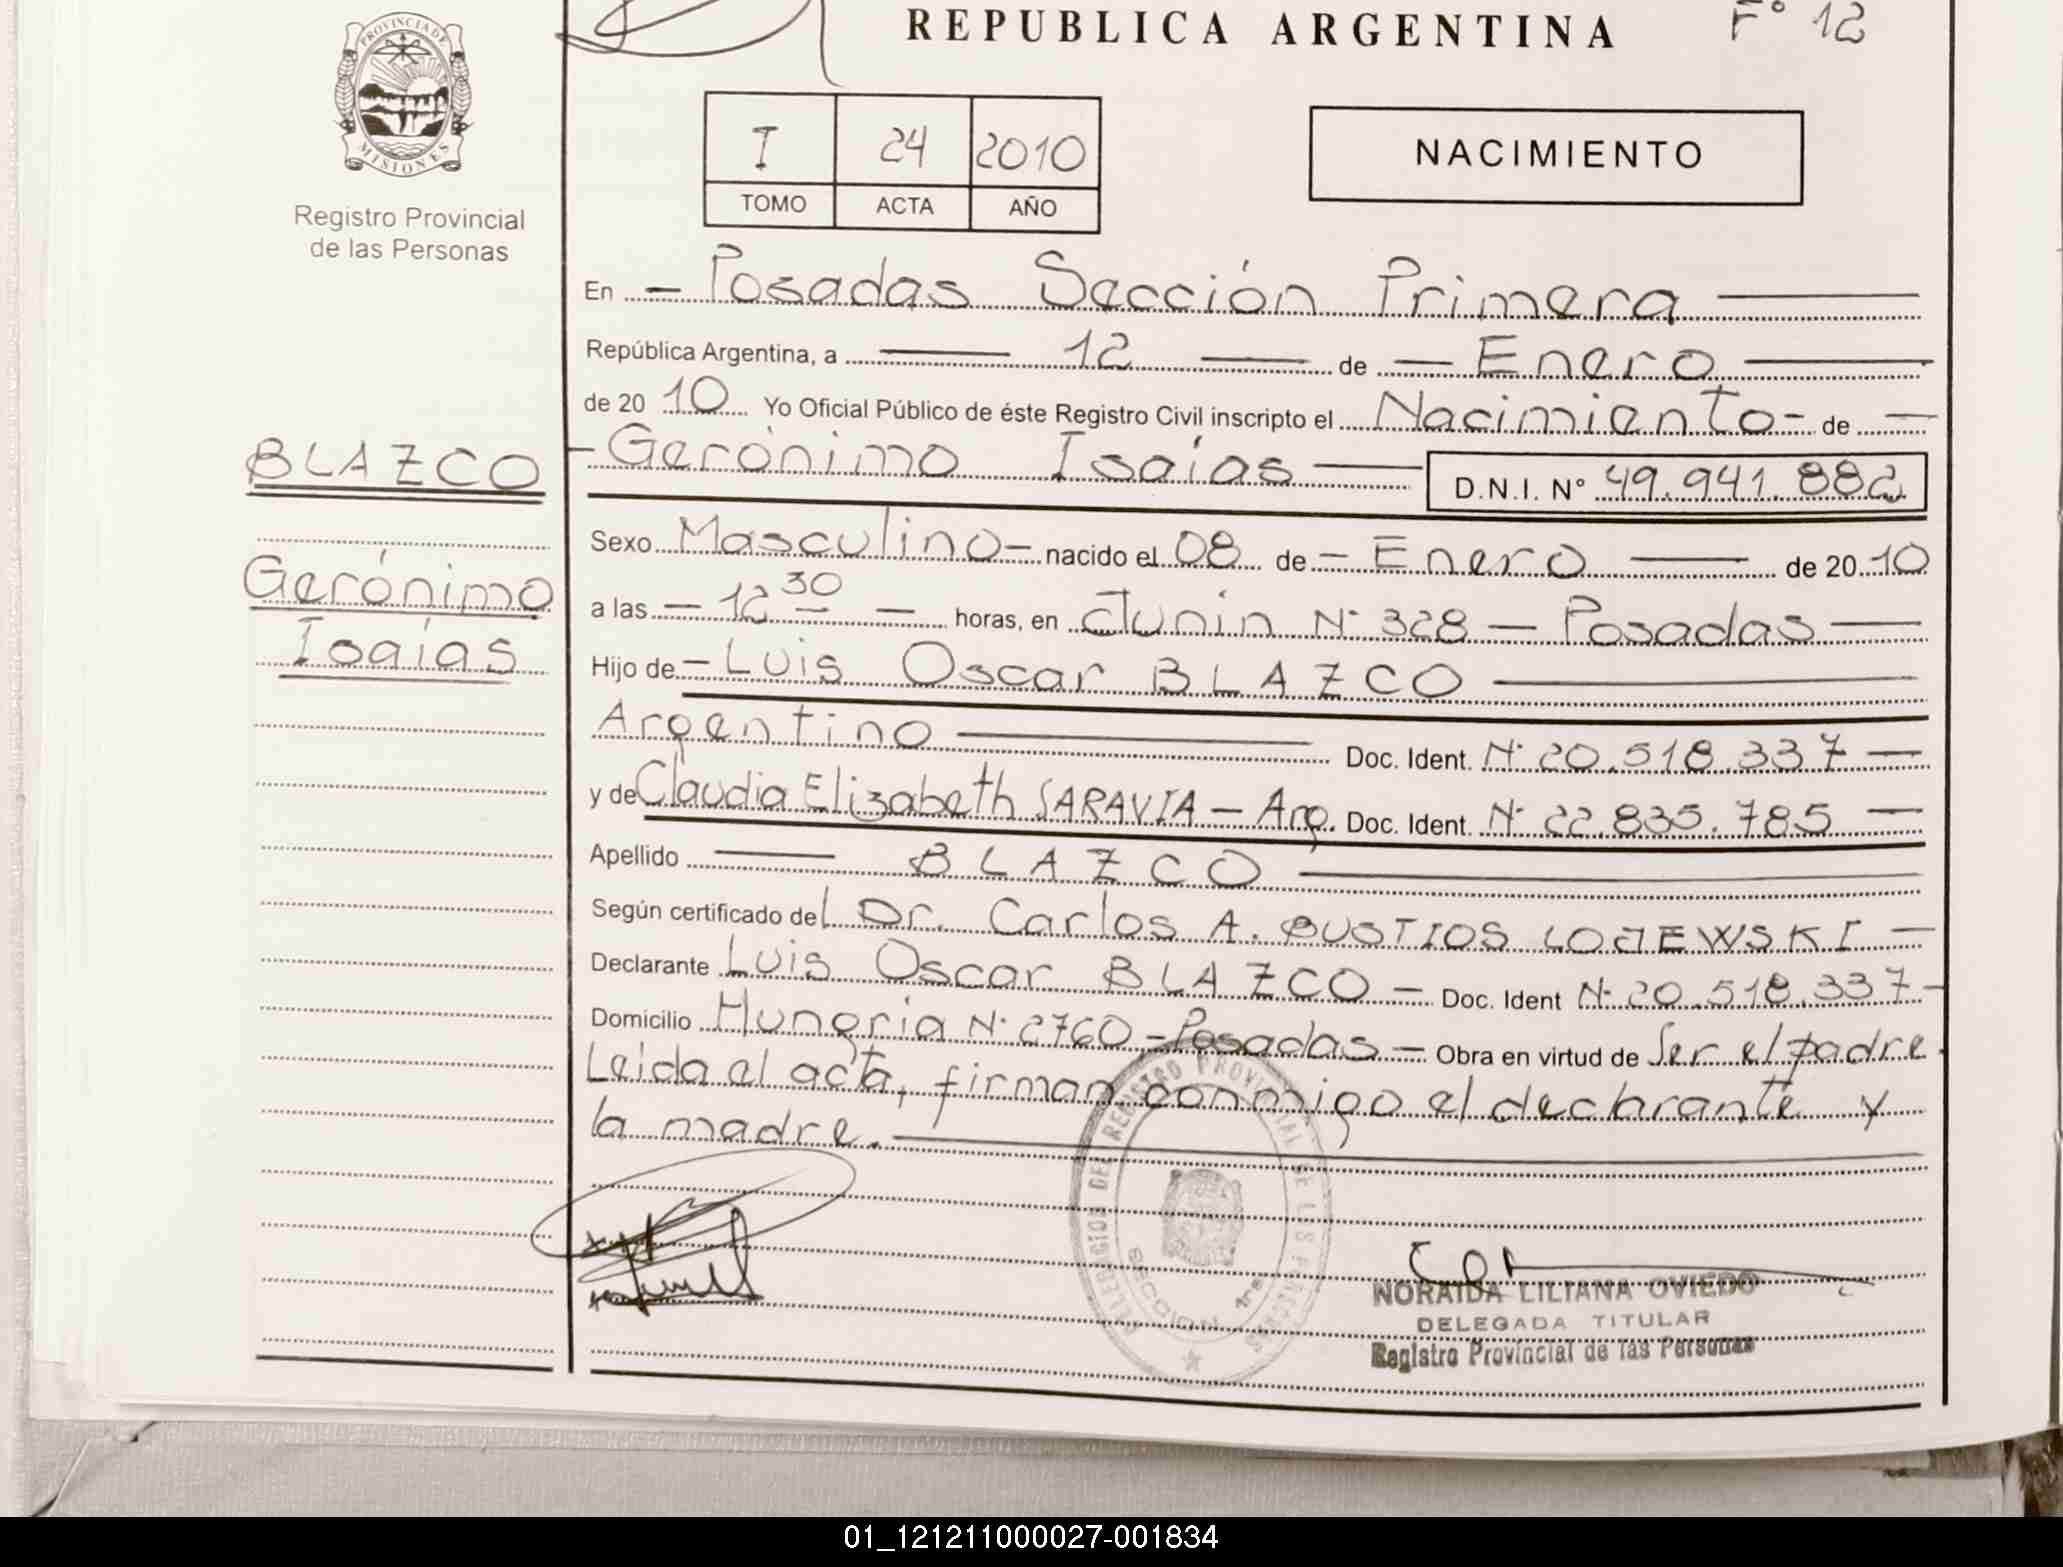 REPUBLICA ARGENTINA
F° 12
PROVINCIA DE
MISIONES
Registro Provincial
de las Personas
I 24 2010
TOMO ACTA AÑO
NACIMIENTO
En - Posadas Sección Primera
República Argentina, a 12 de Enero
de 20 10 Yo Oficial Público de éste Registro Civil inscripto el Nacimiento - de
- Gerónimo Isaías D.N.I. N° 49.941.882
BLAZCO
Gerónimo
Isaías
Sexo Masculino - nacido el 08 de - Enero de 20 10
a las - 12 30 - horas, en Junin N° 328 - Posadas
Hijo de - Luis Oscar BLAZCO
Argentino Doc. Ident. N° 20.518.337 -
y de Claudia Elizabeth SARAVIA - Arg. Doc. Ident. N° 22.835.785 -
Apellido BLAZCO
Según certificado del Dr. Carlos A. BUSTIOS LOJEWSKI -
Declarante Luis Oscar BLAZCO - Doc. Ident N° 20.518.337 -
Domicilio Hungria N° 2760 - Posadas - Obra en virtud de Ser el padre.
Leida el acta, firman conmigo el declarante y
la madre.
DELEGACION DEL REGISTRO PROVINCIAL DE LAS PERSONAS
SECCION 1ra
NORAIDA LILIANA OVIEDO
DELEGADA TITULAR
Registro Provincial de las Personas
01_121211000027-001834